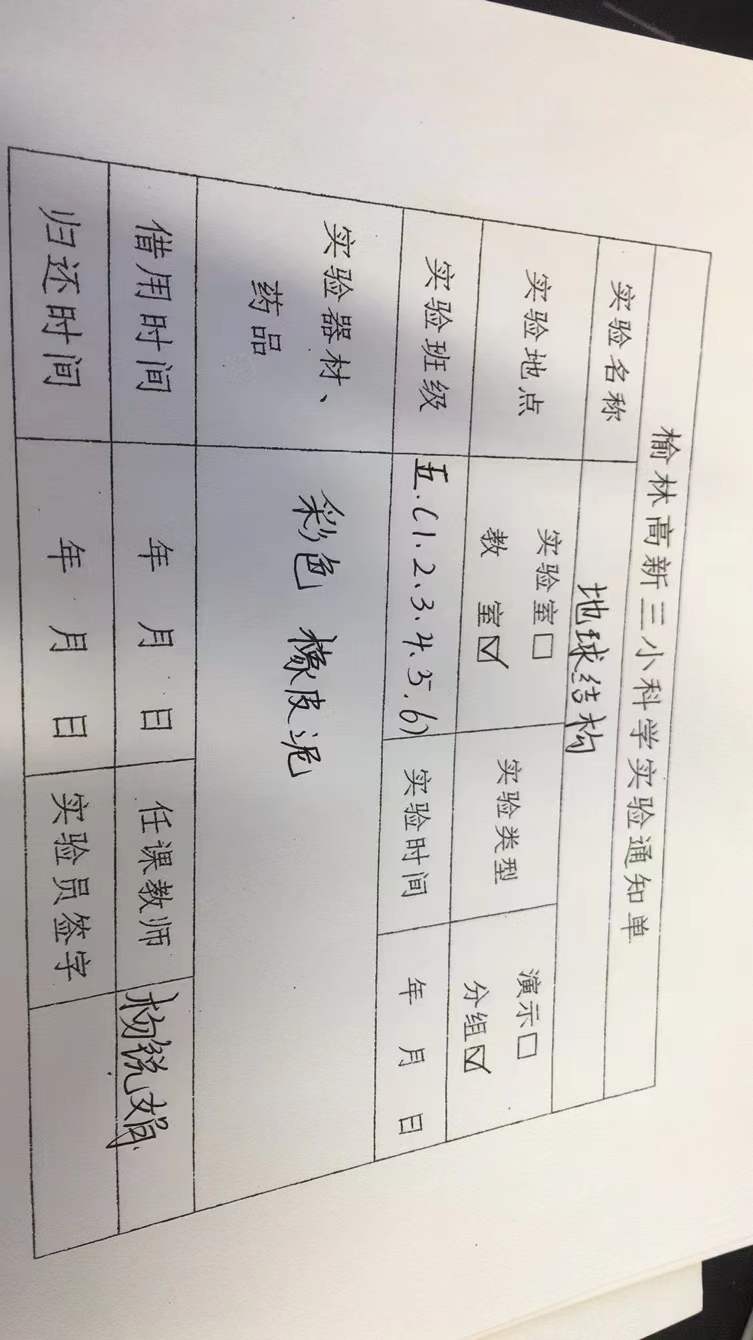 榆林高新三小科学实验通知单
实验名称 地球结构
实验地点 实验室□ 教 室☑ 实验类型 演示□ 分组☑
实验班级 五.(1.2.3.4.5.6) 实验时间 年 月 日
实验器材、药品 彩色 橡皮泥
借用时间 年 月 日 任课教师 杨锐娟
归还时间 年 月 日 实验员签字